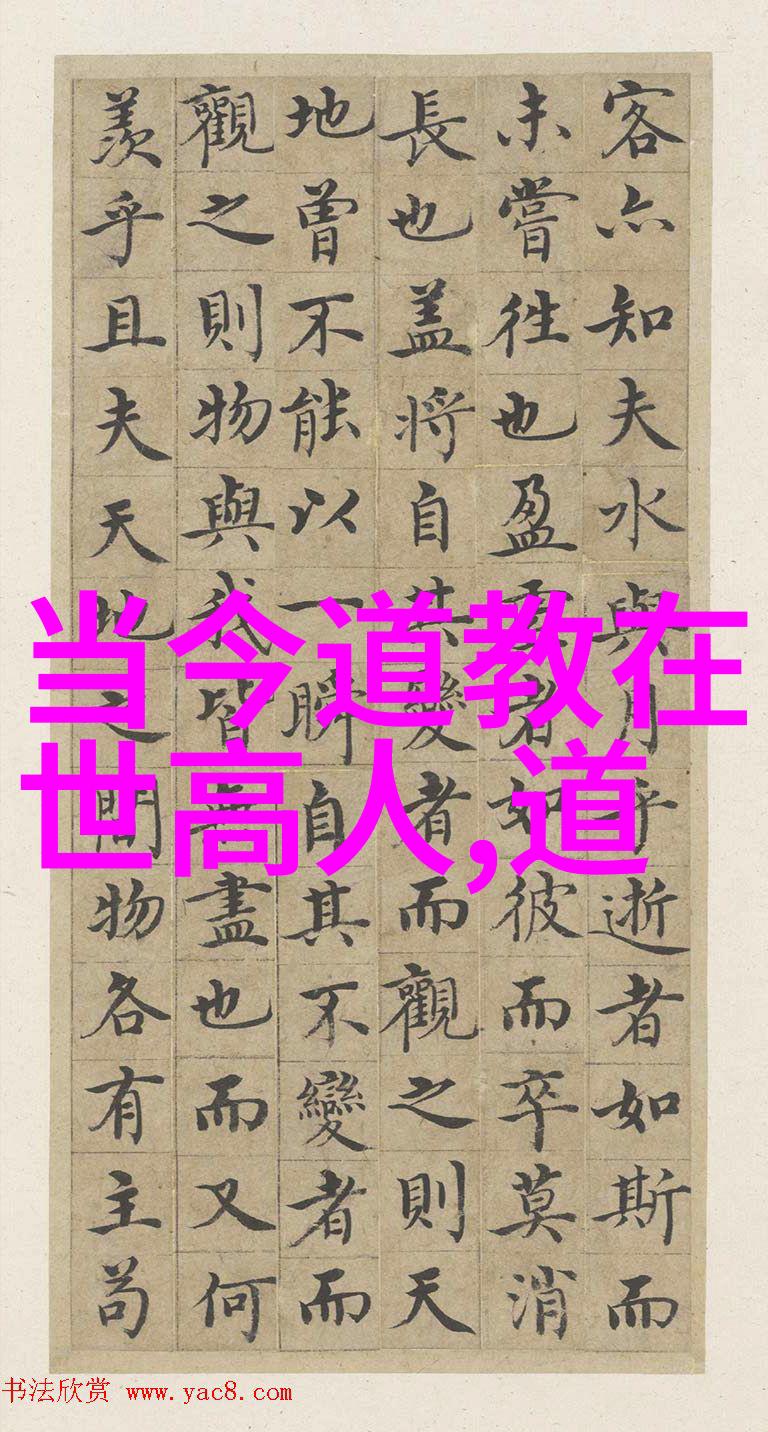 客亦知夫水與月乎逝者如斯而
未嘗往也盈者如彼而卒莫消
長也盖将自其變者而觀之則天
地曾不能以一瞬自其不變者而
觀之則物與我皆無盡也而又何
羨乎且夫天地之間物各有主苟
当今道教在
世高人,道
书法欣赏 www.yac8.com